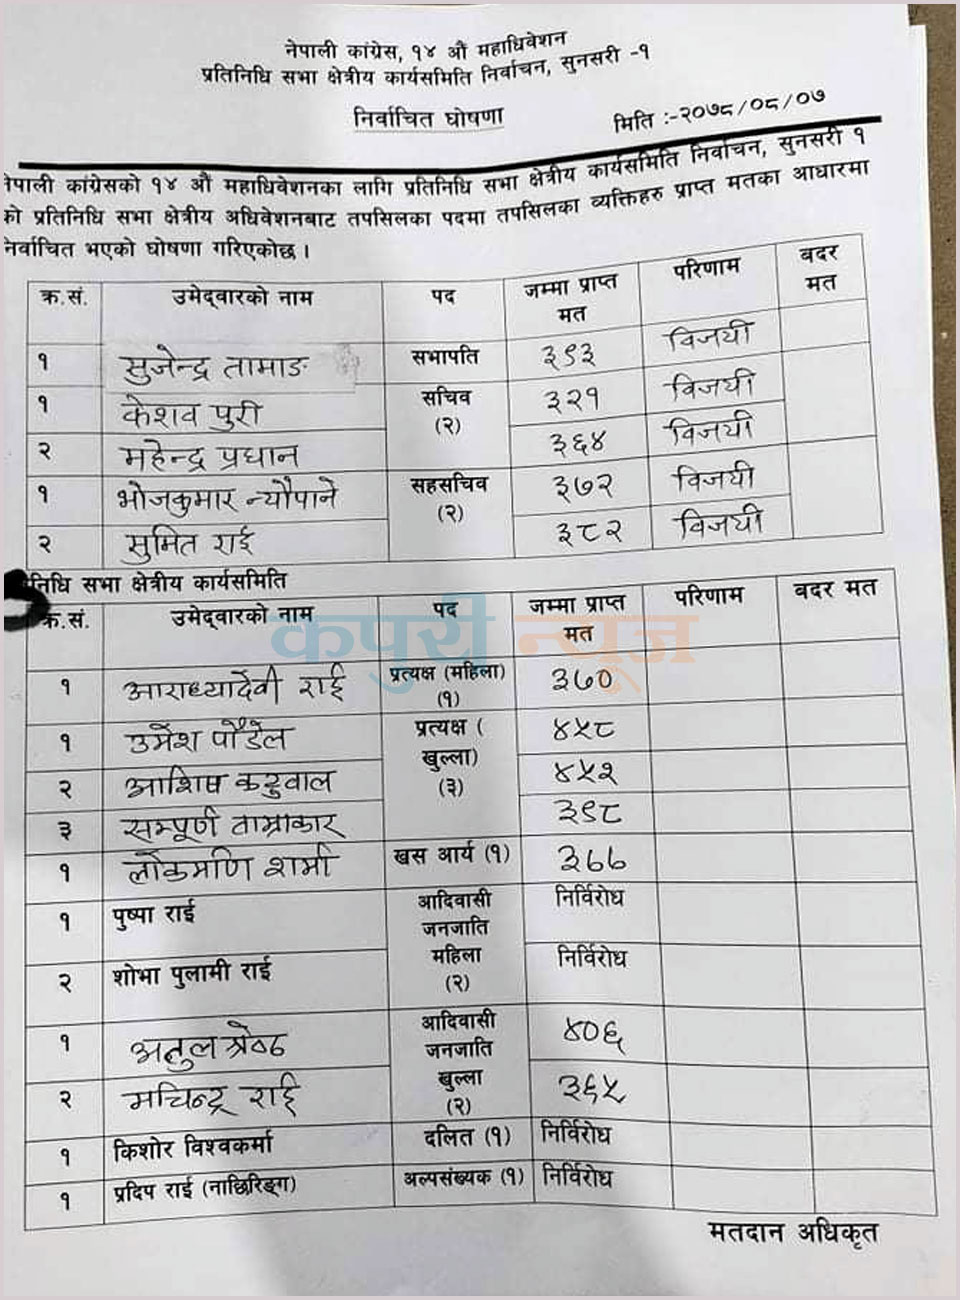 नेपाली कांग्रेस, १४ औं महाधिवेशन
प्रतिनिधि सभा क्षेत्रीय कार्यसमिति निर्वाचन, सुनसरी -१
निर्वाचित घोषणा
मिति :-२०७८/०८/०७
नेपाली कांग्रेसको १४ औं महाधिवेशनका लागि प्रतिनिधि सभा क्षेत्रीय कार्यसमिति निर्वाचन, सुनसरी १
को प्रतिनिधि सभा क्षेत्रीय अधिवेशनबाट तपसिलका पदमा तपसिलका व्यक्तिहरु प्राप्त मतका आधारमा
निर्वाचित भएको घोषणा गरिएकोछ ।
क्र.सं. उमेद्वारको नाम पद जम्मा प्राप्त मत परिणाम बदर मत
१ सुजेन्द्र तामाङ सभापति ३९३ विजयी
१ केशव पुरी सचिव (२) ३२१ विजयी
२ महेन्द्र प्रधान ३६४ विजयी
१ भोजकुमार न्यौपाने सहसचिव (२) ३७२ विजयी
२ सुमित राई ३८२ विजयी
निधि सभा क्षेत्रीय कार्यसमिति
क्र.सं. उमेद्वारको नाम पद जम्मा प्राप्त मत परिणाम बदर मत
कपुरी न्यूज
१ आराध्यादेवी राई प्रत्यक्ष (महिला) (१) ३७०
१ उमेश पौडेल प्रत्यक्ष ( खुल्ला) (३) ४५८
२ आशिष कटुवाल ४५२
३ सम्पूर्ण ताम्राकार ३९८
१ लोकमणि शर्मा खस आर्य (१) ३७७
१ पुष्पा राई आदिवासी जनजाति महिला (२) निर्विरोध
२ शोभा पुलामी राई निर्विरोध
१ अतुल श्रेष्ठ आदिवासी जनजाति खुल्ला (२) ४०६
२ मचिन्द्र राई ३६५
१ किशोर विश्वकर्मा दलित (१) निर्विरोध
१ प्रदिप राई (नाछिरिङ्ग) अल्पसंख्यक (१) निर्विरोध
मतदान अधिकृत